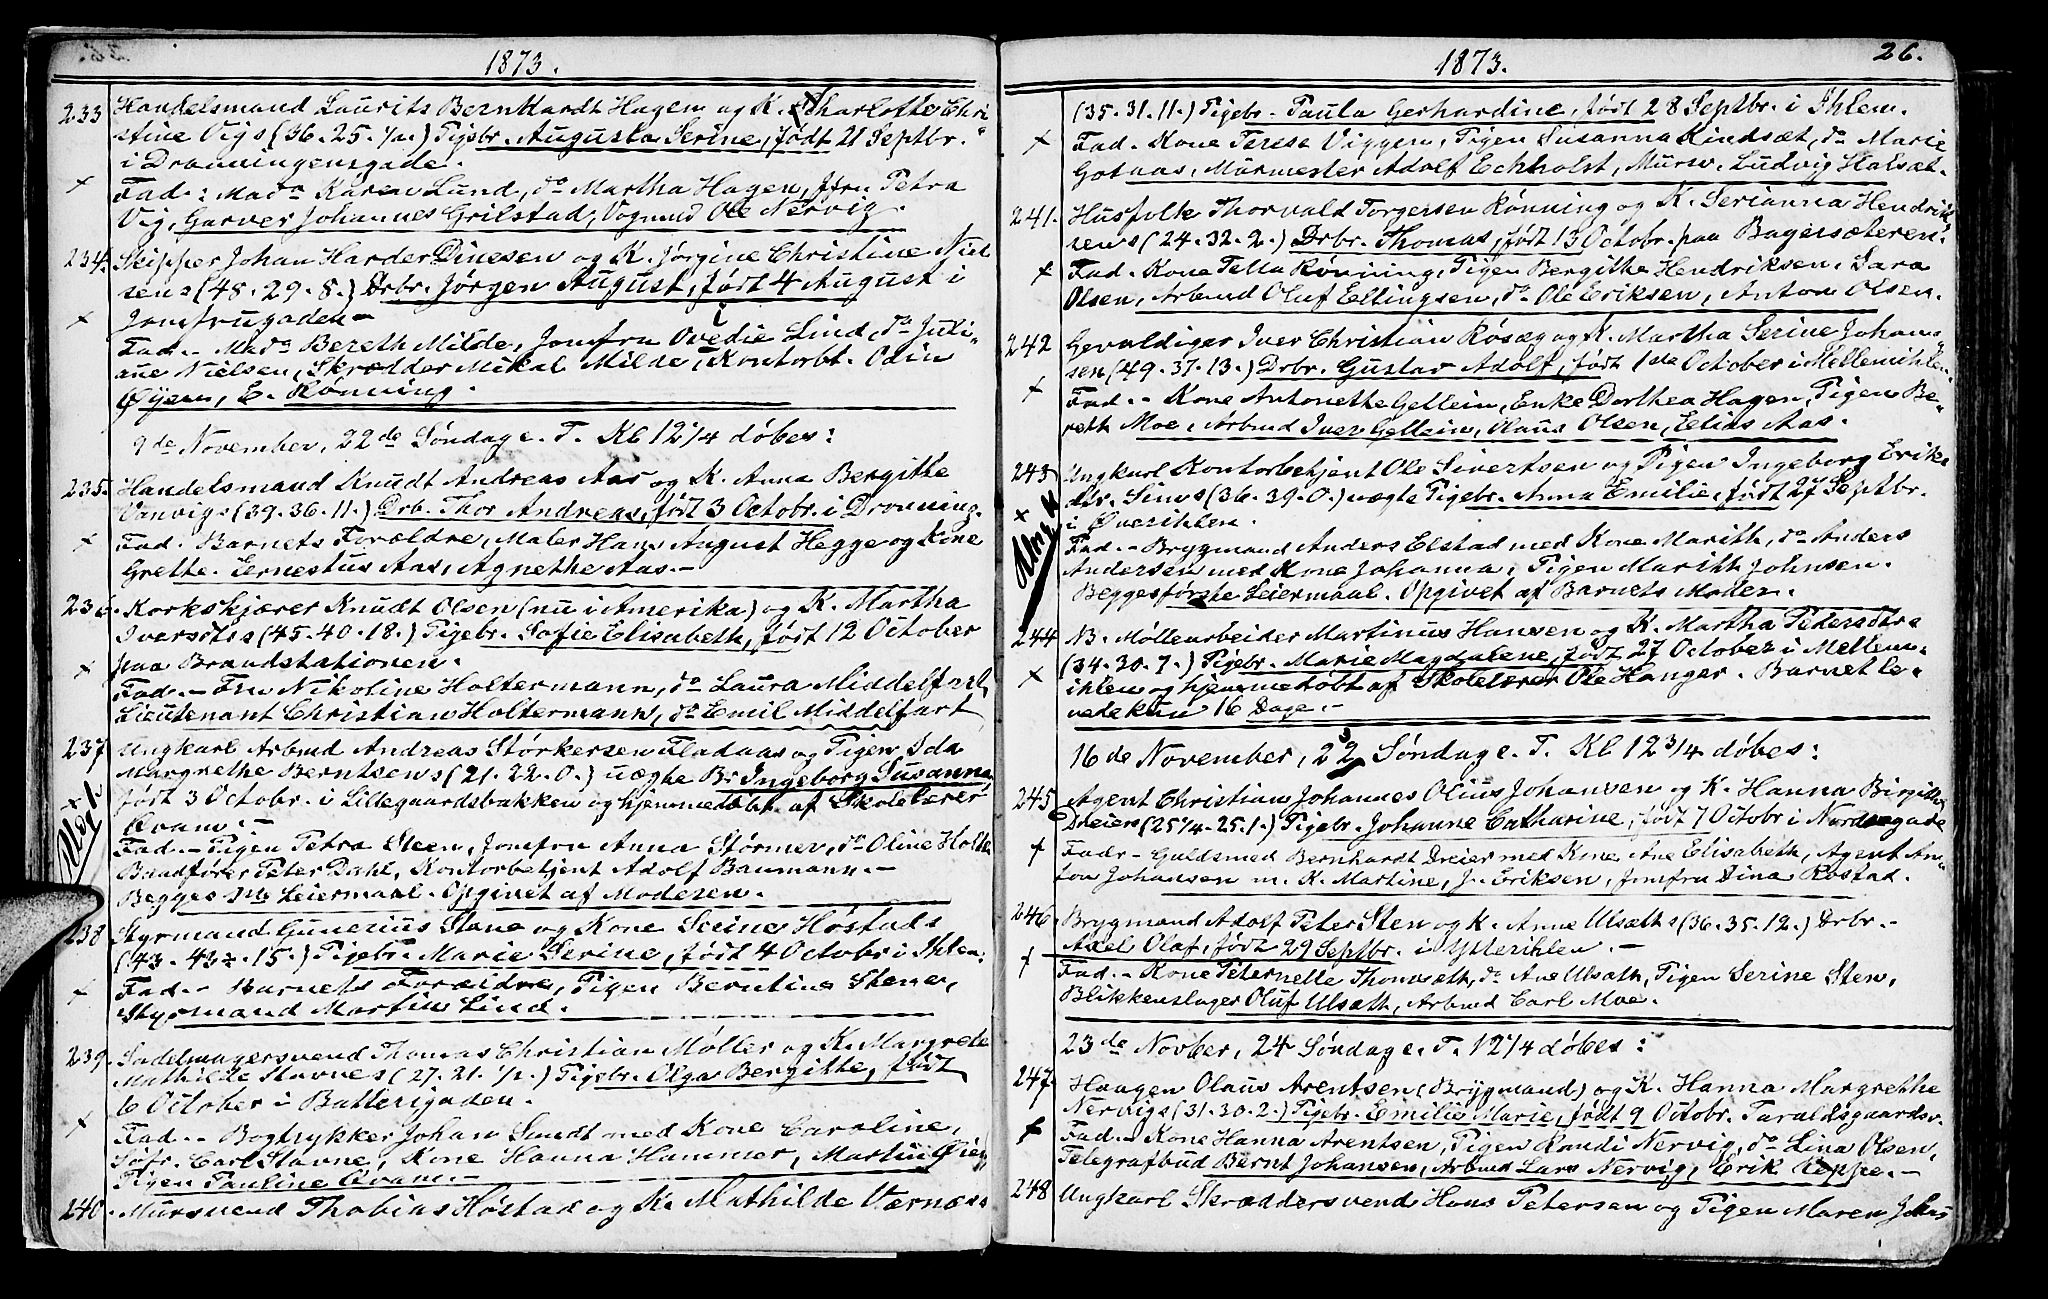 1873.
233 Handelsmand Laurits Bernhardt Hagen og K. Charlotte Chri-
stine Vigs (36. 25. 1/2.) Pigebr. Augusta Serine, født 21 Septbr.
i Dronningensgade.
+ Fad: Mada Karen Lund, do Martha Hagen, Jfru Petra
Vig, Garver Johannes Grilstad, Vognmd Ole Nervig.
234. Skipper Johan Harder Dinesen og K. Jørgine Christine Niel
sens (48. 29. 8.) Drbr. Jørgen August, født 4 August i
+ Jomfrugaden -
Fad. - Mada Bereth Milde, Jomfru Ovidie Lind, do Juli-
ane Nielsen, Skrædder Mikal Milde, Kontorbt. Odin
Øyen, E. Rønning.
9de November, 22de Søndag e. T. Kl 12 1/4 døbes:
235. Handelsmand Knudt Andreas Aas og K. Anna Bergitte
Vanvigs (39. 36. 11.) Drb. Thor Andreas, født 3 Octobr. i Dronning.
+ Fad. Barnets Forældre, Maler Hans August Hegge og Kone
Grethe. Ernestus Aas, Agnethe Aas. -
236. Korkskjærer Knudt Olsen (nu i Amerika) og K. Martha
Iversdtrs (45. 40. 18.) Pigebr. Sofie Elisabeth, født 12 October
+ paa Brandstationen.
Fad. - Fru Nikoline Holtermann, do Laura Middelfart,
Lieutenant Christian Holtermann, do Emil Middelfart
237 Ungkarl Arbmd Andreas Størkersen Fladaas og Pigen Ida
Margrethe Berntsens (21. 22. 0.) uægte Br Ingeborg Susanna,
+ født 3 Octobr. i Lillegaardsbakken og hjemmedøbt af Skolelærer
Uægte Qvam. -
Fad. - Pigen Petra Steen, Jomfru Anna Størmer, do Oline Holte
Baadfører Peter Dahl, Kontorbetjent Adolf Baumann. -
Begges 1ste Leiermaal. Opgivet af Moderen.
238 Styrmand Gunerius Stene og Kone Serine Høstads
(43. 43. 15.) Pigebr. Marie Serine, født 4 Octobr i Ihlen.
+ Fad. - Barnets Forældre, Pigen Berntine Stene,
Styrmand Martin Lind.
239. Sadelmagersvend Thomas Christian Møller og K. Margrete
Mathilde Stavnes (27. 21. 1/2.) Pigebr. Olga Bergitte, født
6 October i Battersgaden.
+ Fad. - Bogtrykker Johan Smidt med Kone Caroline,
Søfr. Carl Stavne, Kone Hanna Hammer, Martin Øien
Pigen Pauline Qvam. -
240. Mursvend Thobias Høstad og K. Mathilde Værnes
1873. 26.
(35. 31. 11.) Pigebr. Paula Gerhardine, født 28 Septbr. i Ihlen.
+ Fad. Kone Terese Viggen, Pigen Susanna Rindsæt, do Marie
Gotaas, Murmester Adolf Echholst, Mursv. Ludvig Halsæt.
241. Husfolk Thorvald Torgersen Rønning og K. Serianna Hendrik
sens (24. 32. 2.) Drbr. Thomas, født 13 Octobr. paa Bagersæteren.
+ Fad. Kone Tella Rønning, Pigen Bergithe Hendriksen, Sara
Olsen, Arbmd Oluf Ellingsen, do Ole Eriksen, Anton Olsen.
242 Gevaldiger Iver Christian Røsæg og K. Martha Serine Johan-
sen (49. 37. 13.) Drbr. Gustav Adolf, født 1ste October i Mellemihlen.
+ Fad. - Kone Antonette Gellein, Enke Dorthea Hagen, Pigen Be-
reth Moe, Arbmd Iver Gellein, Olaus Olsen, Elias Aas.
243 Ungkarl Kontorbetjent Ole Sivertsen og Pigen Ingeborg Eriks
dtr. Sines (36. 39. 0.) uægte Pigebr. Anna Emilie, født 27 Septbr.
+ i Øverihlen.
Uægte Fad. - Brygmand Anders Elstad med Kone Marith, do Anders
Andersen med Kone Johanna, Pigen Maritt Johnsen.
Begges første Leiermaal. Opgivet af Barnets Moder.
244 NB. Møllearbeider Martinus Hansen og K. Martha Pedersdtrs
(34. 30. 7.) Pigebr. Marie Magdalene, født 27 October i Mellem-
+ ihlen og hjemmedøbt af Skolelærer Ole Hanger. Barnet le-
vede kun 16 Dage. -
16de November, 23 Søndag e. T. Kl 12 3/4 døbes:
245 Agent Christian Johannes Olius Johansen og K. Hanna Birgitte
Dreiers (25 1/4. 25. 1.) Pigebr. Johanne Catharine, født 7 Octobr i Nordregade
+ Fadr - Guldsmed Bernhardt Dreier med Kone Ane Elisabeth, Agent An-
ton Johansen m. K. Martine, J. Eriksen, Jomfru Dina Rostad.
246. Brygmand Adolf Peter Sten og K. Anne Ulsæths (36. 35. 12.) Drbr. -
Axel Olaf, født 29 Septbr. i Ytterihlen. -
+ Fad. - Kone Peternelle Thonsæth, do Ane Ulsæth, Pigen Serine Sten,
Blikkenslager Oluf Ulsæth, Arbmd Carl Moe.
23de Novber, 24 Søndag e. T. 12 1/4 døbes:
247. Haagen Olaus Arentsen (Brygmand) og K. Hanna Margrethe
Nervigs (31. 30. 2.) Pigebr. Emilie Marie, født 9 Octobr. Taraldsgaardsv.
+ Fad. - Kone Hanna Arentsen, Pigen Randi Nervig, do Lina Olsen,
Telegrafbud Bernt Johansen, Arbmd Lars Nervig, Erik Leppe. -
248 Ungkarl Skræddersvend Hans Petersen og Pigen Maren Johs